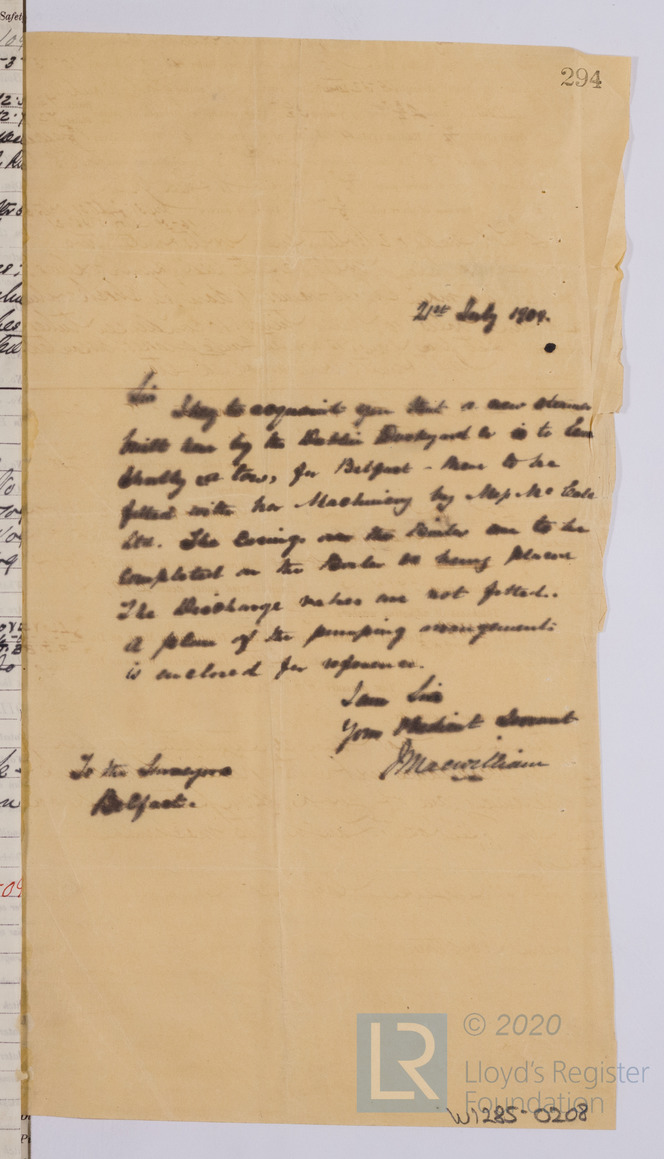 294
21st July 1909.
Sir
I beg to acquaint you that a new steamer
built here by the Dublin Dockyard Co is to leave
shortly in tow, for Belfast - there to be
fitted with her Machinery by Mess Mc
Ltd. The Casings over the Boiler are to be
completed on the Boiler being placed
The Discharge valves are not fitted.
A plan of the pumping arrangements
is enclosed for reference.
I am Sir
Your Obedient Servant
J Macwilliam
To the Surveyors
Belfast.
LR
© 2020
Lloyd's Register
Foundation
W1285-0208